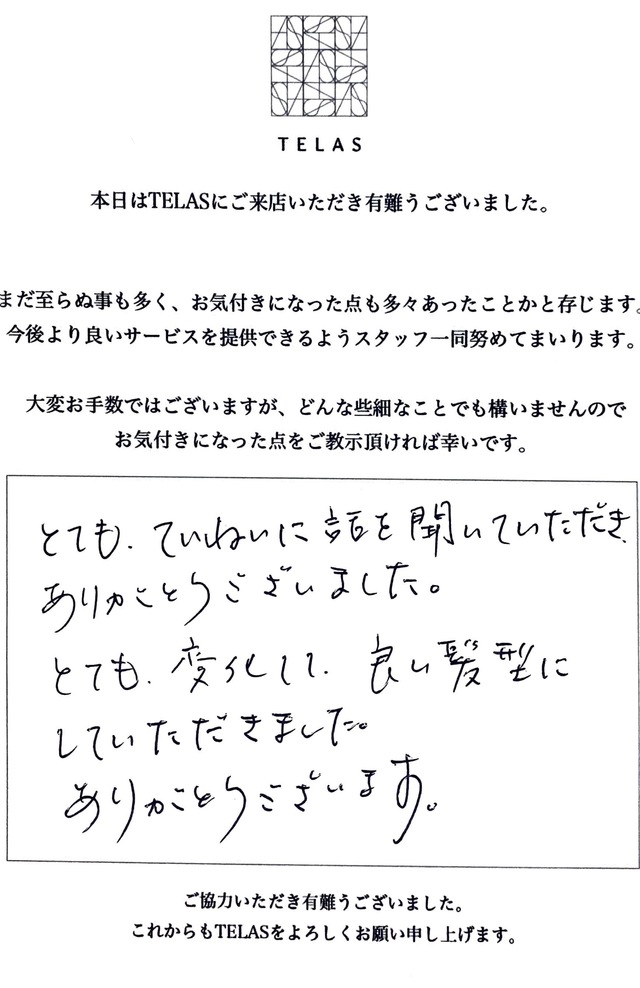 TELAS
本日はTELASにご来店いただき有難うございました。
まだ至らぬ事も多く、お気付きになった点も多々あったことかと存じます。
今後より良いサービスを提供できるようスタッフ一同努めてまいります。
大変お手数ではございますが、どんな些細なことでも構いませんので
お気付きになった点をご教示頂ければ幸いです。
とても、ていねいに話を聞いていただき
ありがとうございました。
とても、変化して、良い髪型に
していただきました。
ありがとうございます。
ご協力いただき有難うございました。
これからもTELASをよろしくお願い申し上げます。